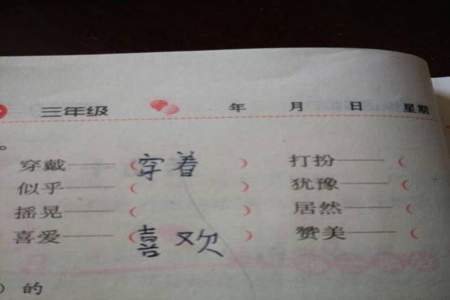 三年级 年 月 日 星期
。
穿戴——(穿着) 打扮——(
似乎——( ) 犹豫——(
摇晃——( ) 居然——(
喜爱——(喜欢) 赞美——(
)的